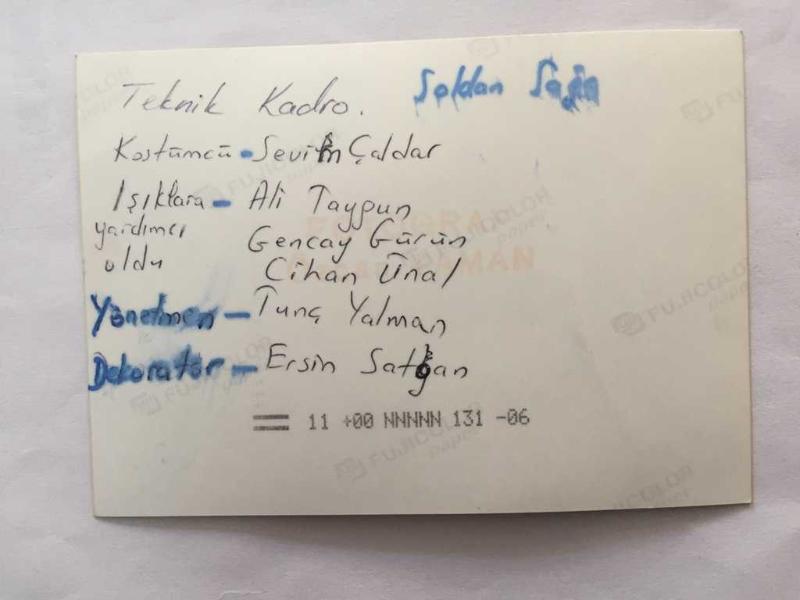 Teknik Kadro. Soldan Sağa
Kostümcü - Sevim Çaldar
Işıklara - Ali Taygun
yardımcı Gencay Gürün
oldu Cihan Ünal
Yönetmen - Tunç Yalman
Dekoratör - Ersin Satgan
11 +00 NNNNN 131 -06
FUJICOLOR
paper